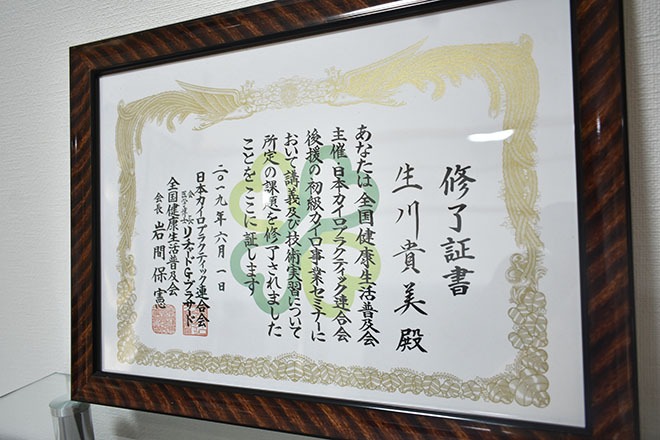 修了証書
生川貴美殿
あなたは全国健康生活普及会
主催日本カイロプラクティック連合会
後援の初級カイロ事業セミナーに
おいて講義及び技術実習について
所定の課題を修了されました
ことをここに証します
二〇一九年六月一日
日本カイロプラクティック連合会
会長
リチャードG・ブラザード
全国健康生活普及会
会長 岩間保憲